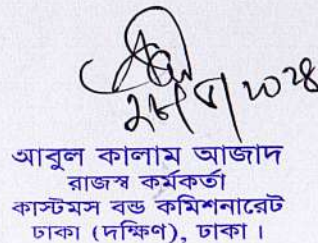 আবুল কালাম আজাদ
রাজস্ব কর্মকর্তা
কাস্টমস বন্ড কমিশনারেট
ঢাকা (দক্ষিণ), ঢাকা।